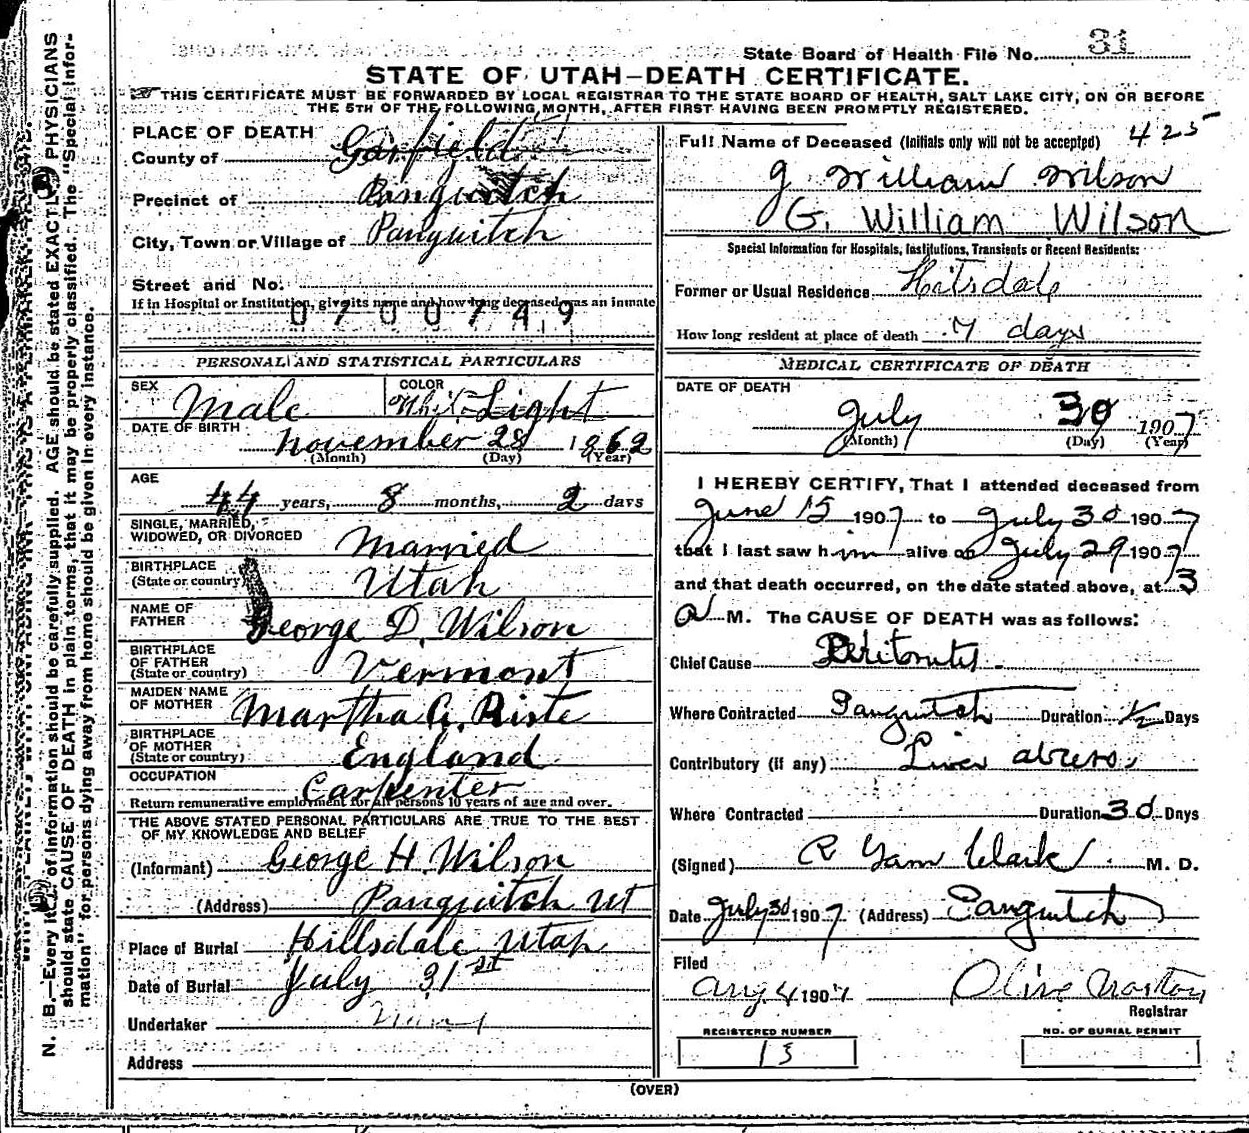 State Board of Health File No. 31
STATE OF UTAH—DEATH CERTIFICATE.
THIS CERTIFICATE MUST BE FORWARDED BY LOCAL REGISTRAR TO THE STATE BOARD OF HEALTH, SALT LAKE CITY, ON OR BEFORE
THE 5TH OF THE FOLLOWING MONTH, AFTER FIRST HAVING BEEN PROMPTLY REGISTERED.
PLACE OF DEATH
County of Garfield
Precinct of Panguitch
City, Town or Village of Panguitch
Street and No.
If in Hospital or Institution, give its name and how long deceased was an inmate
0700749
PERSONAL AND STATISTICAL PARTICULARS
SEX Male
COLOR White Light
DATE OF BIRTH
November 28 1862
(Month) (Day) (Year)
AGE
44 years, 8 months, 2 days
SINGLE, MARRIED,
WIDOWED, OR DIVORCED Married
BIRTHPLACE
(State or country) Utah
NAME OF
FATHER George D. Wilson
BIRTHPLACE
OF FATHER
(State or country) Vermont
MAIDEN NAME
OF MOTHER Martha G. Riste
BIRTHPLACE
OF MOTHER
(State or country) England
OCCUPATION Carpenter
Return remunerative employment for all persons 10 years of age and over.
THE ABOVE STATED PERSONAL PARTICULARS ARE TRUE TO THE BEST
OF MY KNOWLEDGE AND BELIEF
(Informant) George H. Wilson
(Address) Panguitch Ut
Place of Burial Hillsdale Utah
Date of Burial July 31st
Undertaker
Address
425
Full Name of Deceased (Initials only will not be accepted)
G William Wilson
G. William Wilson
Special Information for Hospitals, Institutions, Transients or Recent Residents:
Former or Usual Residence
How long resident at place of death 7 days
MEDICAL CERTIFICATE OF DEATH
DATE OF DEATH
July 30 1907
(Month) (Day) (Year)
I HEREBY CERTIFY, That I attended deceased from
June 15 1907 to July 30 1907
that I last saw him alive on July 29 1907
and that death occurred, on the date stated above, at 3
a M. The CAUSE OF DEATH was as follows:
Chief Cause Peritonites
Where Contracted Panguitch Duration 1/2 Days
Contributory (if any) Liver abscess
Where Contracted Duration 30 Days
(Signed) R Clark M. D.
Date July 30 1907 (Address) Panguitch
Filed
Aug 4 1907 Olive Norton
Registrar
REGISTERED NUMBER
13
NO. OF BURIAL PERMIT
(OVER)
N. B.—Every item of information should be carefully supplied. AGE should be stated EXACTLY. PHYSICIANS
should state CAUSE OF DEATH in plain terms, that it may be properly classified. The "Special Infor-
mation" for persons dying away from home should be given in every instance.